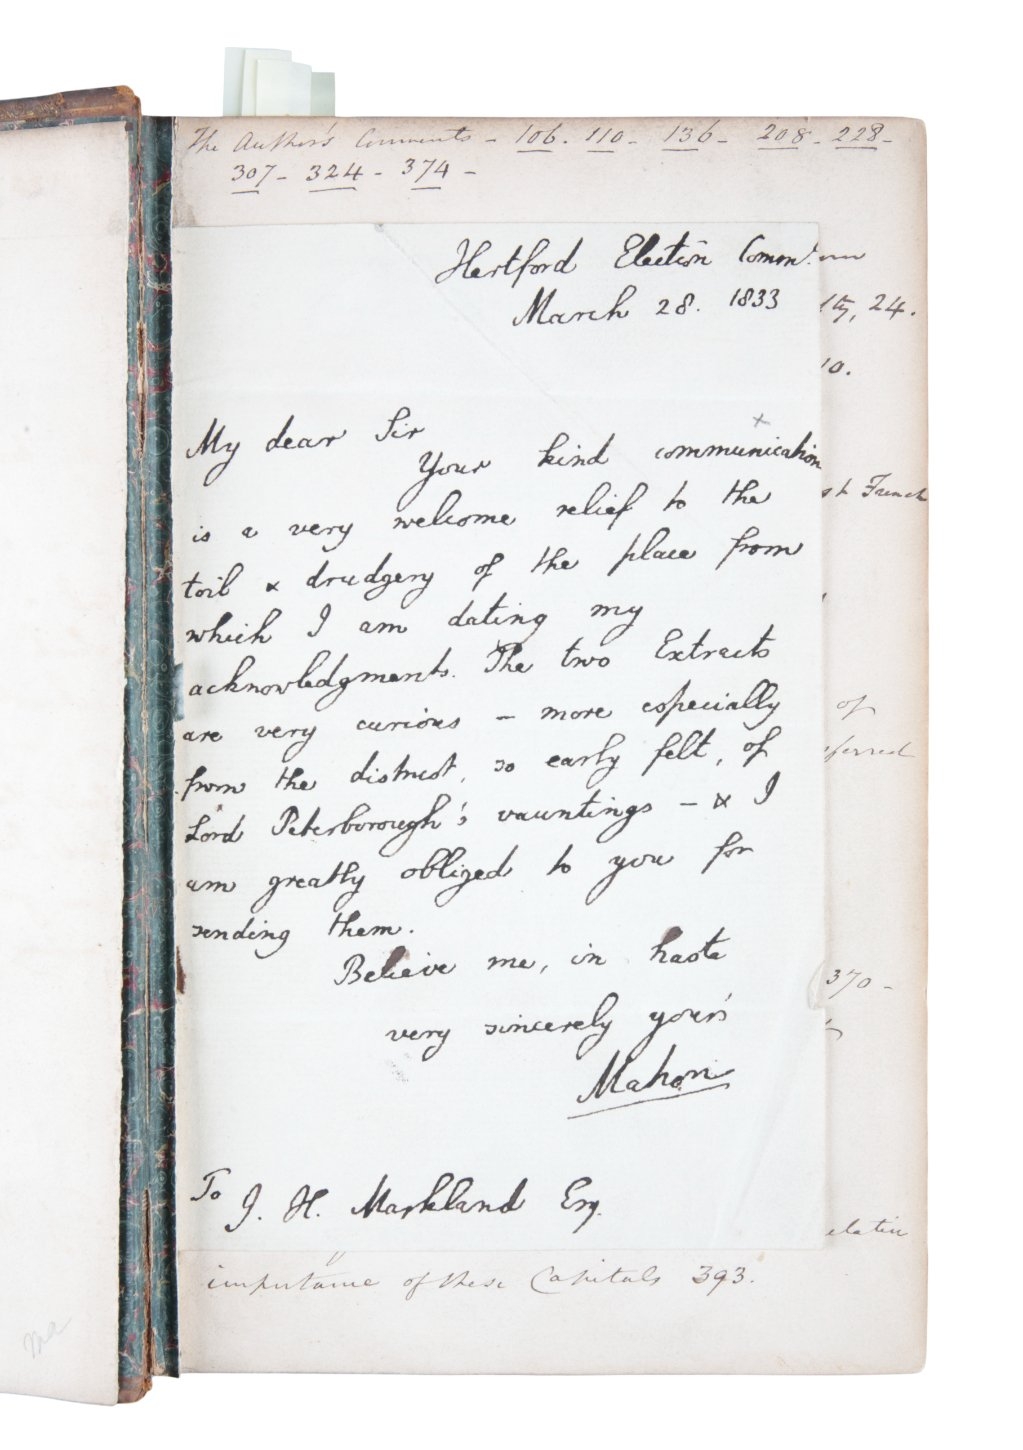 The Author's Comments - 106. 110 - 136 - 208 - 228 -
307 - 324 - 374 -
Hertford Election Commt.
March 28. 1833
lty, 24.
10.
My dear Sir
Your kind communication
is a very welcome relief to the
French
toil & drudgery of the place from
which I am dating my
acknowledgments. The two Extracts
are very curious - more especially
of
from the distrust, so early felt, of
ferred
Lord Peterborough's vauntings - & I
am greatly obliged to you for
sending them.
Believe me, in haste
370 -
very sincerely your's
Mahon
To J. H. Markland Esq.
importance of these Capitals 393.